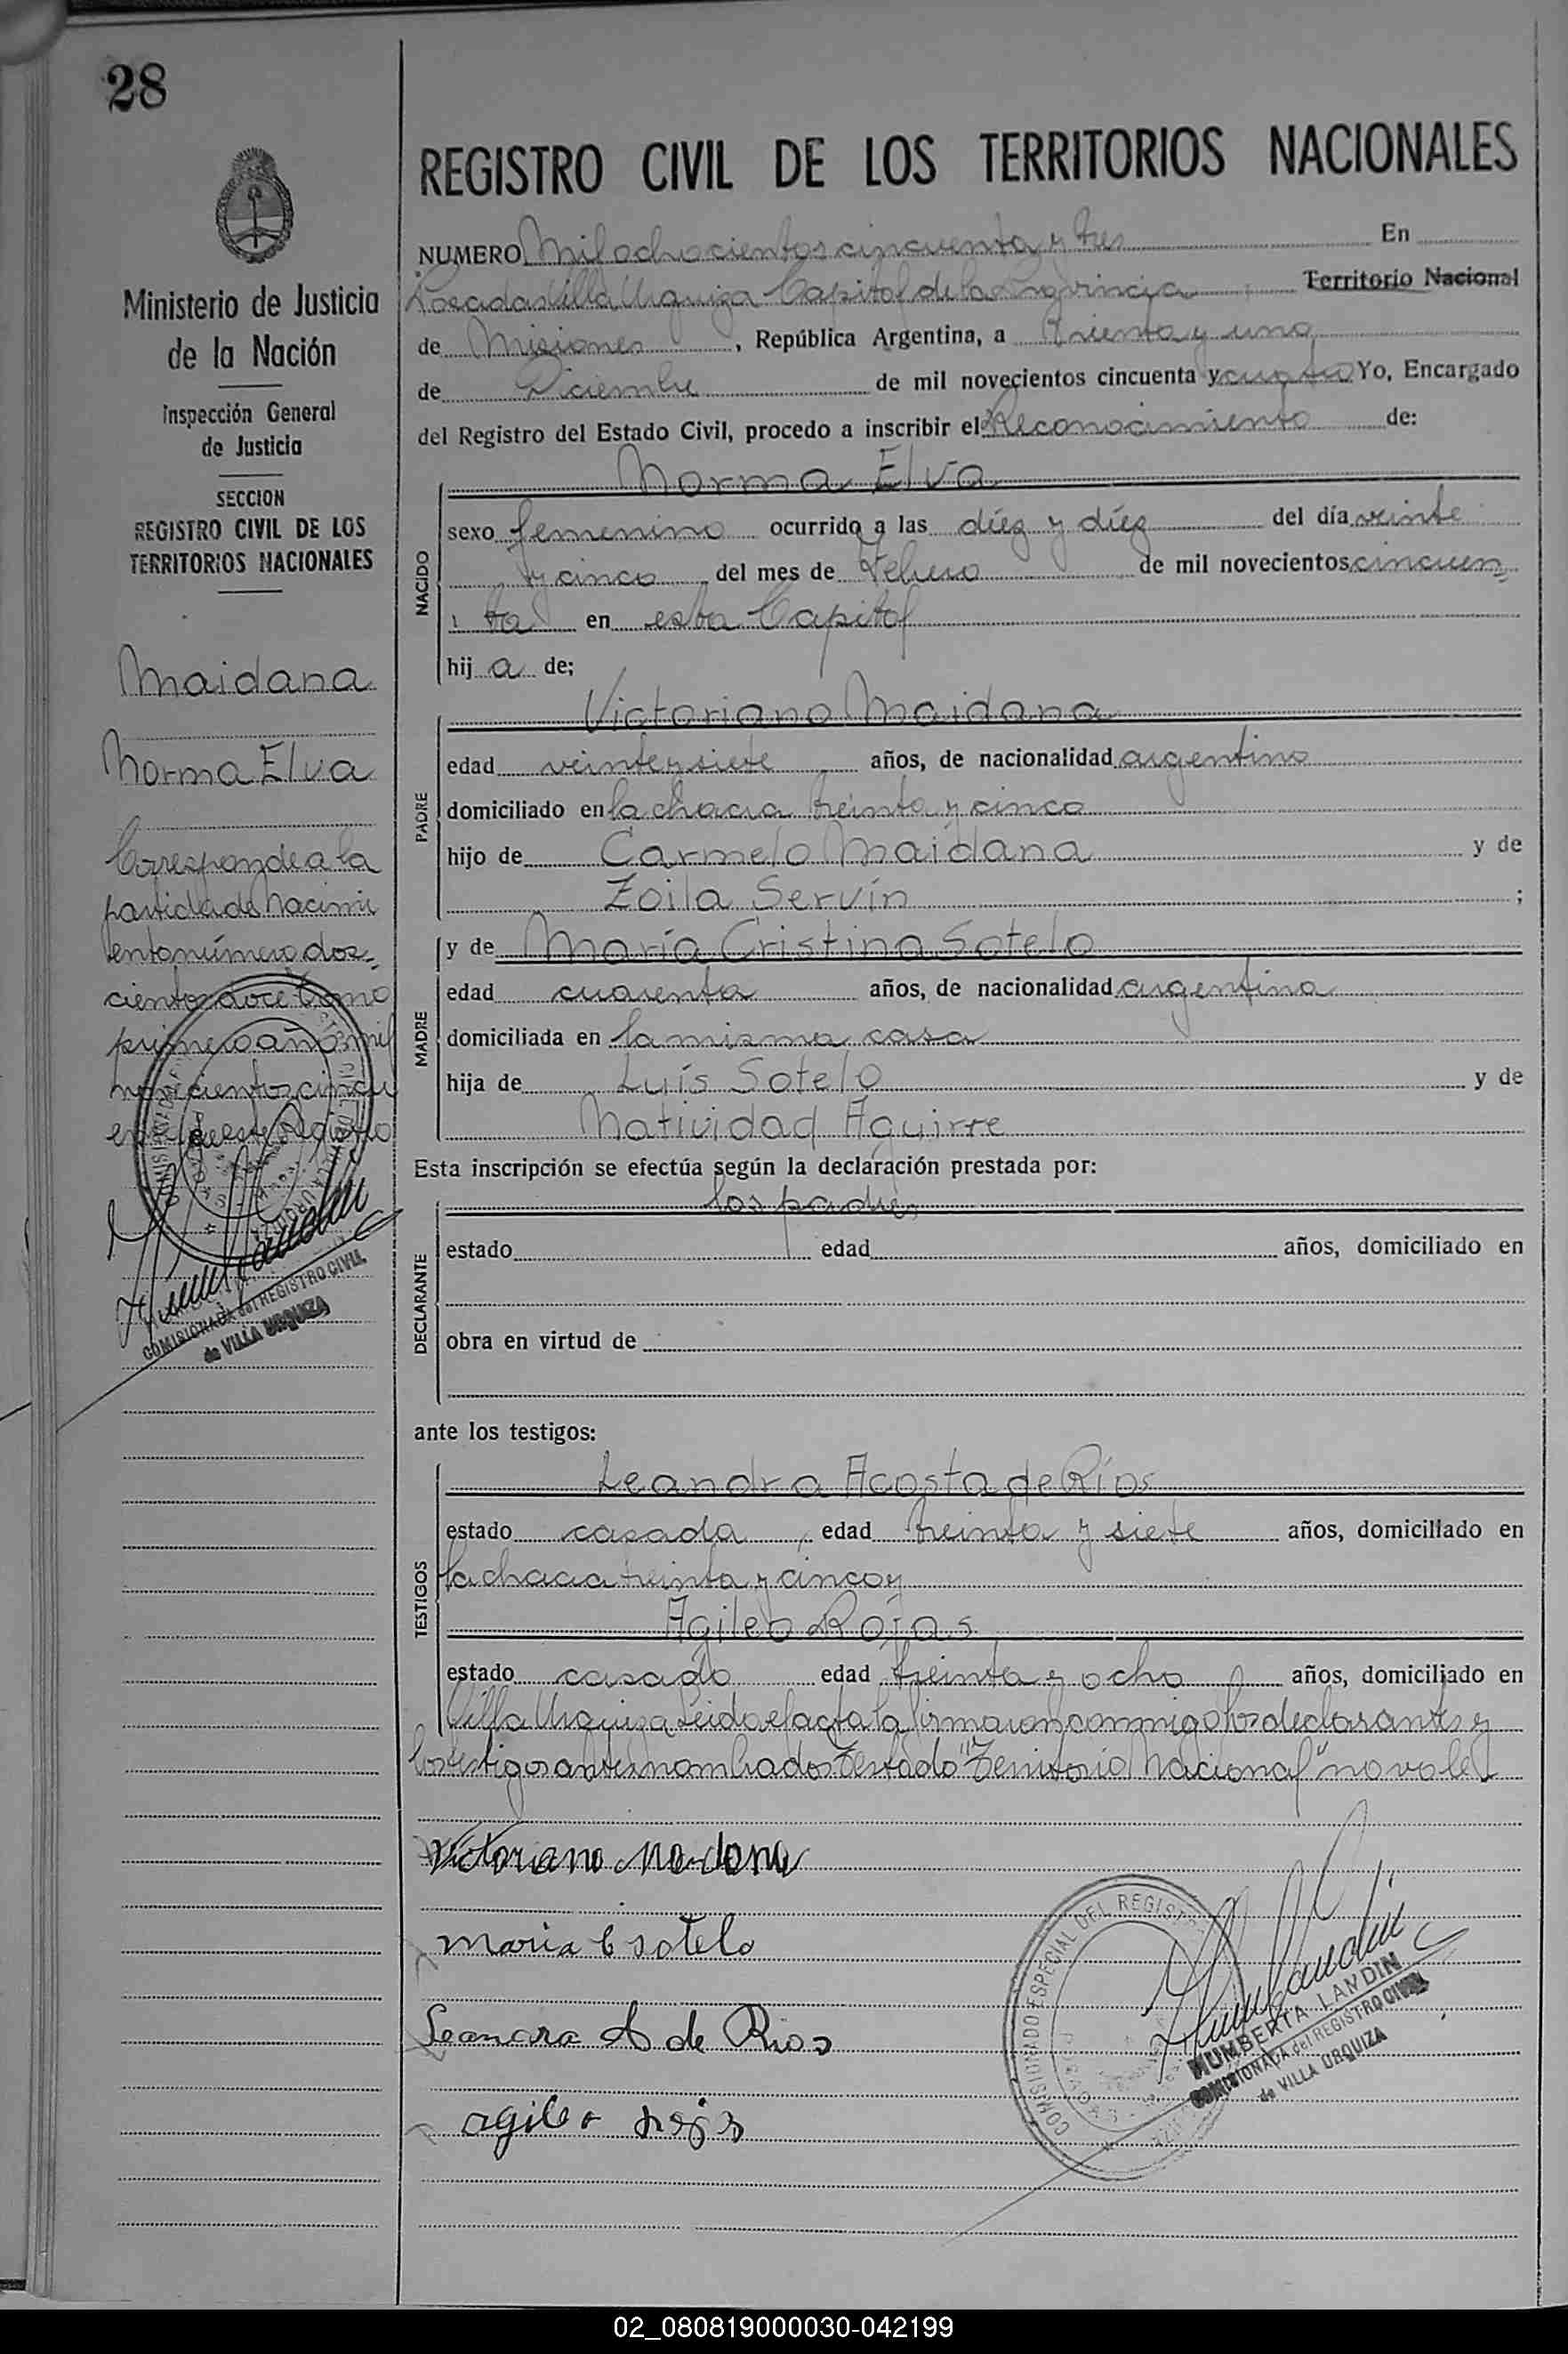 28
Ministerio de Justicia
de la Nación
Inspección General
de Justicia
SECCION
REGISTRO CIVIL DE LOS
TERRITORIOS NACIONALES
Maidana
Norma Elva
Corresponde a la
partida de nacimi
ento número dos-
cientos doce Tomo
primero año mil
novecientos cincu
COMISIONADA del REGISTRO CIVIL
de VILLA URQUIZA
REGISTRO CIVIL DE LOS TERRITORIOS NACIONALES
NUMERO Mil ochocientos cincuenta y tres En
Posadas Villa Urquiza Capital de la Provincia Territorio Nacional
de Misiones, República Argentina, a treinta y uno
de Diciembre de mil novecientos cincuenta y cuatro Yo, Encargado
del Registro del Estado Civil, procedo a inscribir el Reconocimiento de:
Norma Elva
NACIDO
sexo femenino ocurrido a las diez y diez del día veinte
y cinco del mes de Febrero de mil novecientos cincuen=
ta en esta Capital
hij a de;
PADRE
Victoriano Maidana
edad veinte y siete años, de nacionalidad argentino
domiciliado en la chacra treinta y cinco
hijo de Carmelo Maidana y de
Zoila Servín ;
MADRE
y de María Cristina Sotelo
edad cuarenta años, de nacionalidad argentina
domiciliada en la misma casa
hija de Luís Sotelo y de
Natividad Aguirre
Esta inscripción se efectúa según la declaración prestada por:
DECLARANTE
los padres
estado edad años, domiciliado en
obra en virtud de
ante los testigos:
TESTIGOS
Leandra Acosta de Ríos
estado casada, edad treinta y siete años, domiciliado en
la chacra treinta y cinco y
Agileo Rojas
estado casado edad treinta y ocho años, domiciliado en
Villa Urquiza Leida el acta la firmaron conmigo los declarantes y
los testigos antes nombrados Testado "Territorio Nacional" no vale
Victoriano Maidana
Maria C Sotelo
Leandra A de Rios
agileo rojas
COMISIONADO ESPECIAL DEL REGISTRO
HUMBERTA LANDIN
COMISIONADA del REGISTRO CIVIL
de VILLA URQUIZA
02_080819000030-042199